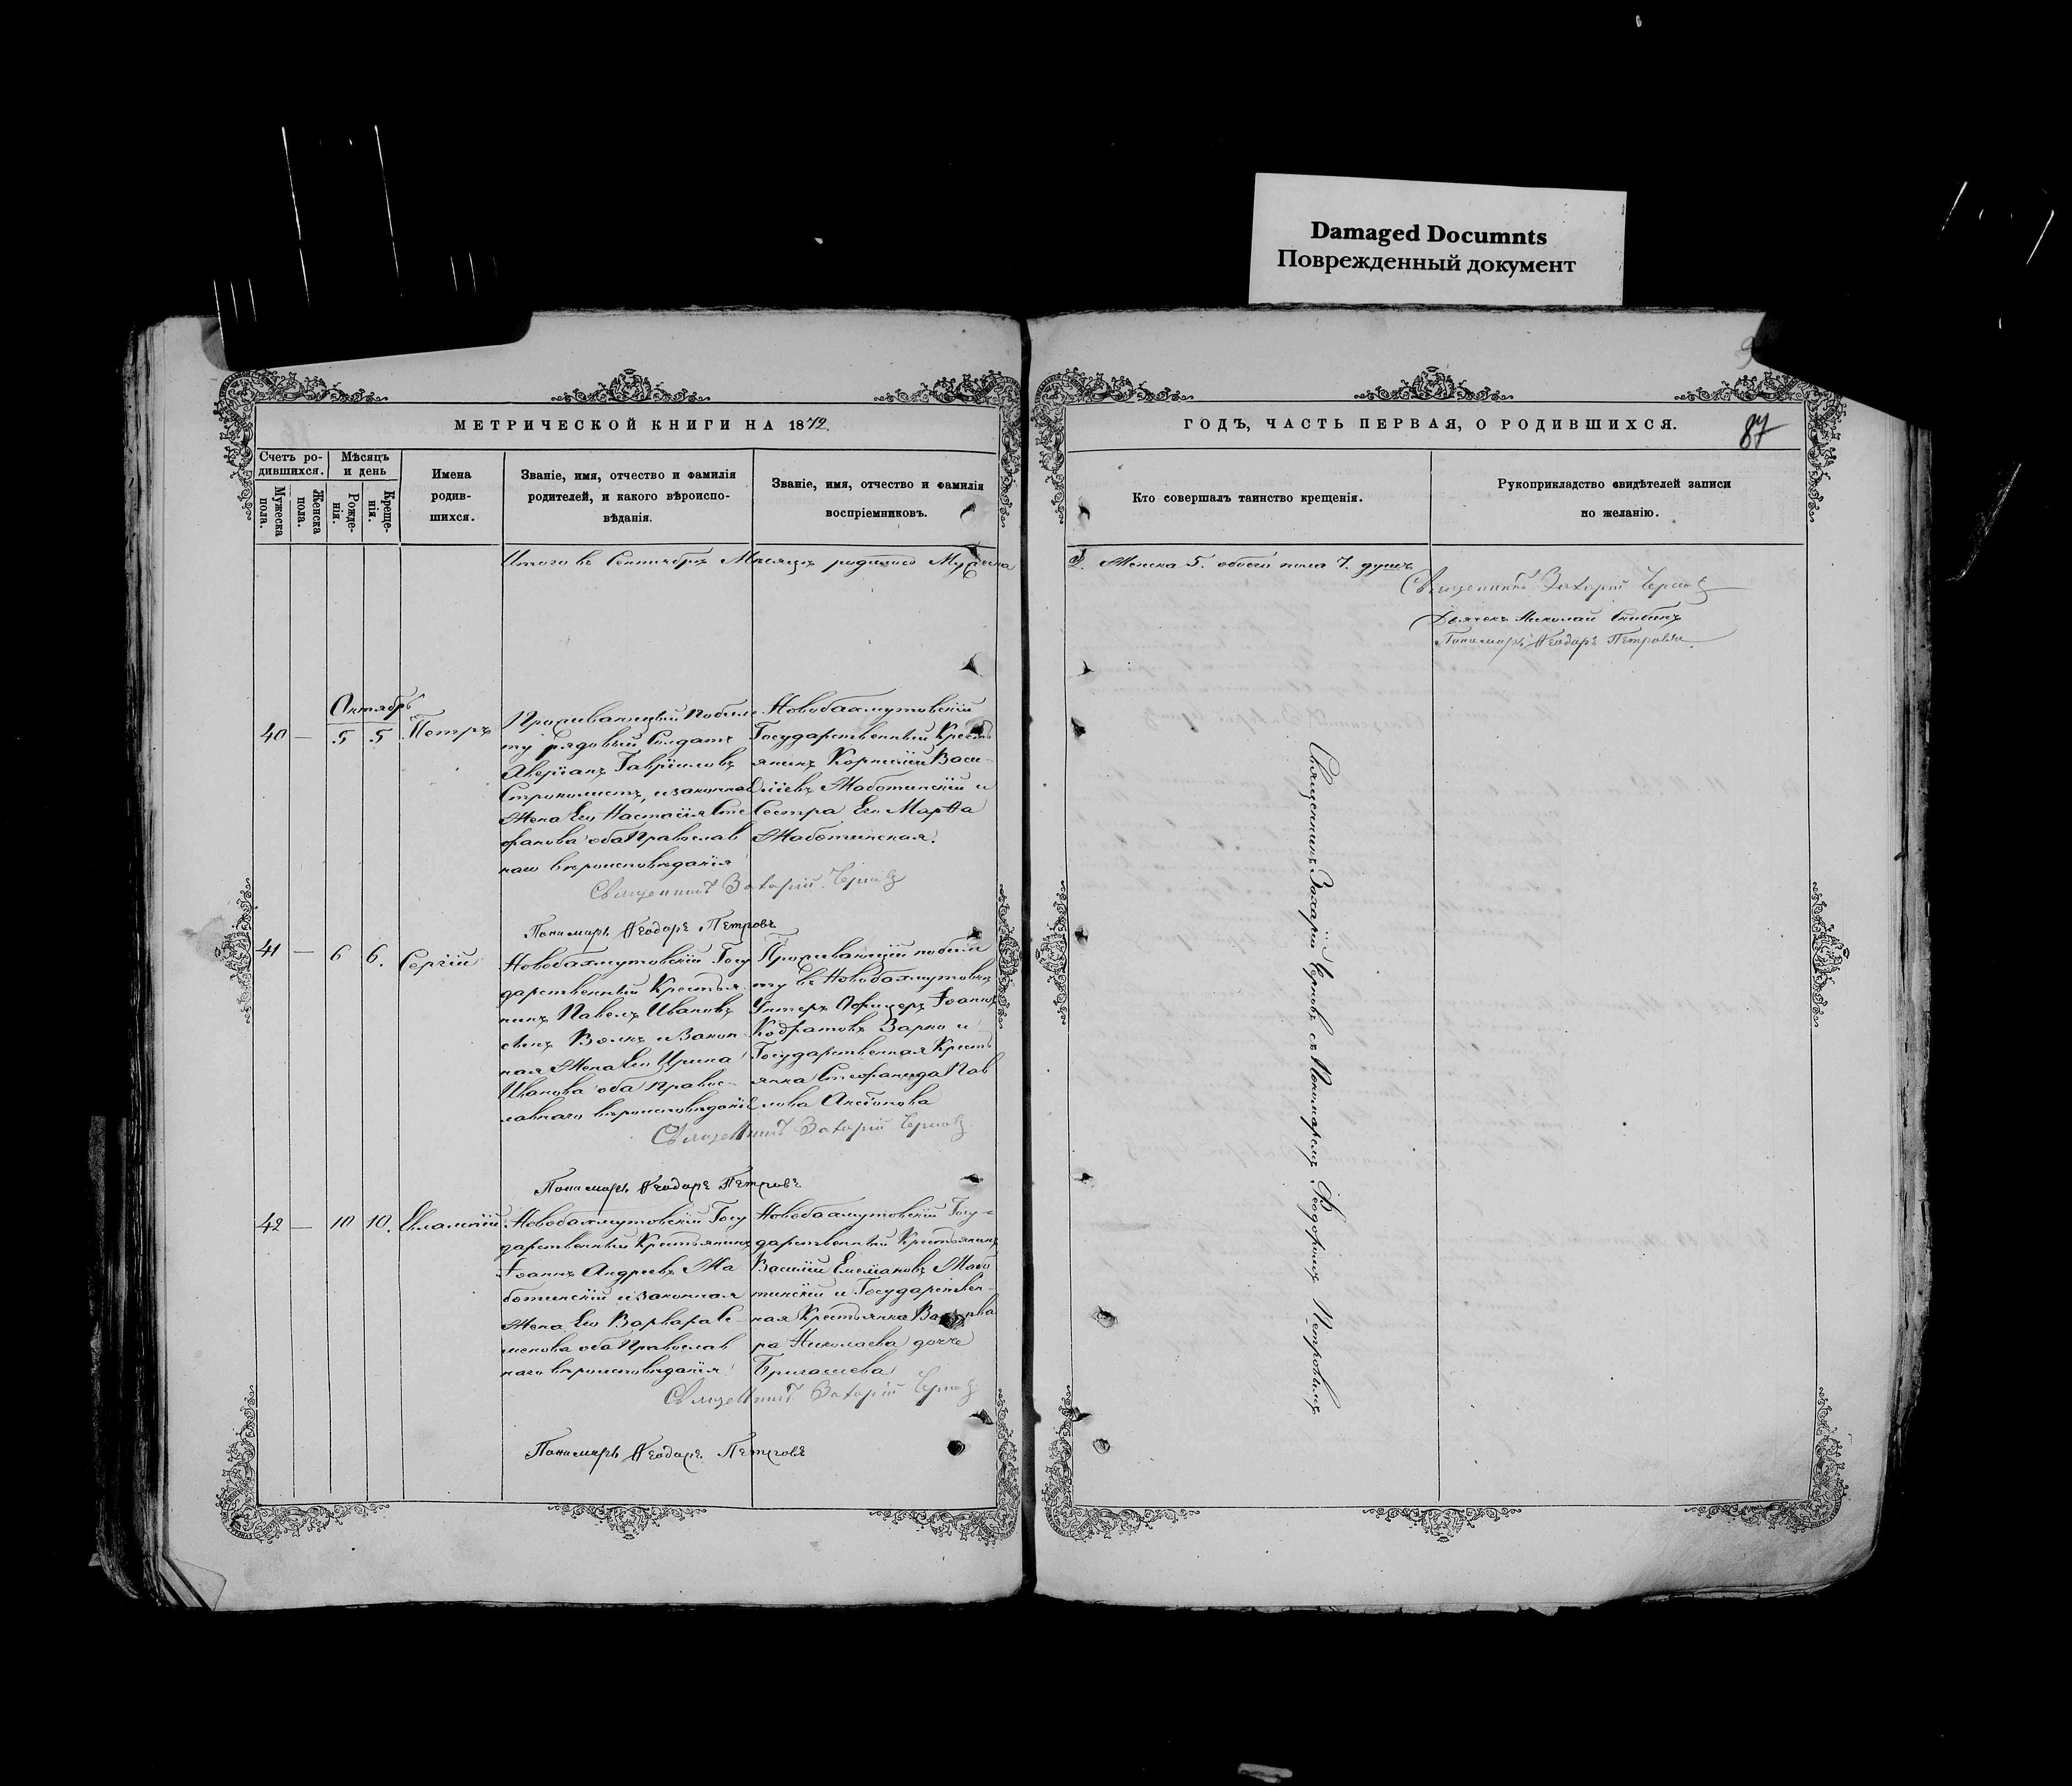 Damaged Documnts
Поврежденный документ
МЕТРИЧЕСКОЙ КНИГИ НА 1872.
Счетъ ро-
дившихся.
Мѣсяцъ
и день
Мужеска
пола.
Женска
пола.
Рожде-
нія.
Креще-
нія.
Имена
родив-
шихся.
Званіе, имя, отчество и фамилія
родителей, и какого вѣроиспо-
вѣданія.
Званіе, имя, отчество и фамилія
воспріемниковъ.
Итого въ Сентябрѣ Мѣсяцѣ родилось Мужеска
Октябрь
40 — 5 5 Петръ
Проживающій побиле
ту рядовый Солдатъ
Аверіанъ Гавріиловъ
и законная
Жена Его Настасія Сте
фанова оба Православ
наго вѣроисповѣданія
Новобахмутовскій
Государственный Кресть
янинъ Корнилій Васи-
ліевъ Жаботинскій и
Сестра Его Марѳа
Жаботинская.
Священникъ Захарій Черновъ
Пономарь Ѳеодоръ Петровъ
41 — 6 6. Сергій
Новобахмутовскій Госу
дарственный Крестья
нинъ Павелъ Ивановъ
сынъ Волкъ и Закон
ная Жена Его Ирина
Иванова оба Правос-
лавнаго вѣроисповѣданія
Проживающій побиле
ту въ Новобахмутовкѣ
Унтеръ Офицеръ Іоаннъ
Кодратовъ Зарко и
Государственная Кресть
янка Стефанида Пав
лова Аксіонова
Священникъ Захарій Черновъ
Пономарь Ѳеодоръ Петровъ
42 — 10 10. Евлампій
Новобахмутовскій Госу
дарственный Крестьянинъ
Іоаннъ Андреевъ Жа
ботинскій и законная
Жена Его Варвара Се-
менова оба Православ
наго вѣроисповѣданія
Новобахмутовскій Госу-
дарственный Крестьянинъ
Василій Емеліановъ Жабо
тинскій и Государствен-
ная Крестьянка
ра Николаева дочь
Священникъ Захарій Черновъ
Пономарь Ѳеодоръ Петровъ
ГОДЪ, ЧАСТЬ ПЕРВАЯ, О РОДИВШИХСЯ.
87
Кто совершалъ таинство крещенія.
Рукоприкладство свидѣтелей записи
по желанію.
2. Женска 5. обоего пола 7. душъ
Священникъ Захарій Черновъ
Дьячекъ Николай
Пономарь Ѳеодоръ Петровъ
Священникъ Захарій Черновъ съ Пономаремъ Ѳеодоромъ Петровымъ